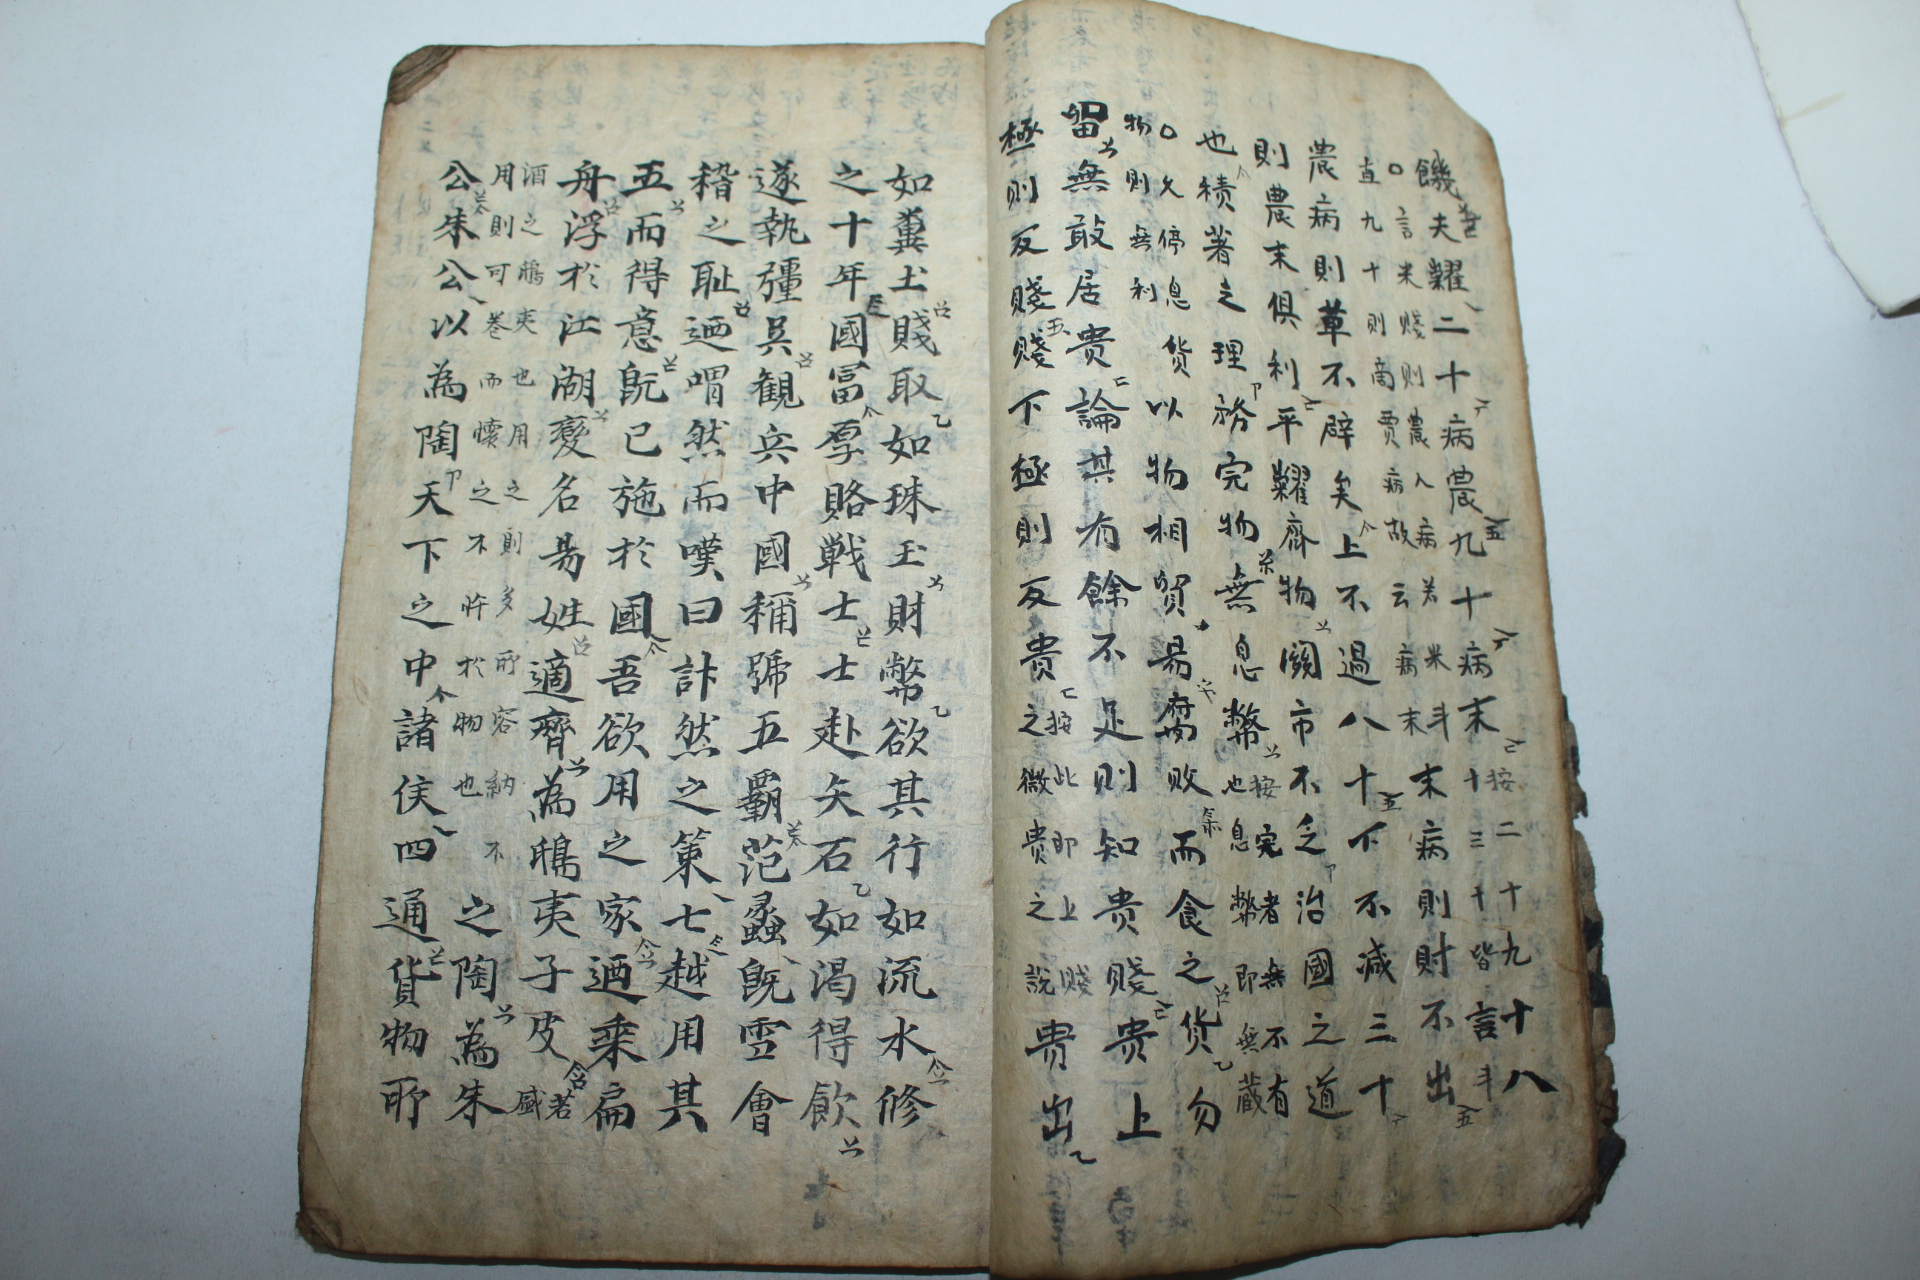 饑夫糶二十病農九十病末
按二十九十八
十三十皆言斗
○言米賤則農人病若米斗
直九十則商賈病故云病末
末病則財不出
農病則草不辟矣上不過八十下不減三十
則農末俱利平糶齊物關市不乏治國之道
也積著之理務完物無息幣
按完者無不有
也息幣即無藏
○久停息貨
物則無利
以物相貿易腐敗而食之貨勿
留無敢居貴論其有餘不足則知貴賤貴上
極則反賤賤下極則反貴
按此即上賤
之微貴之說
貴出
如糞土賤取如珠玉財幣欲其行如流水修
之十年國冨厚賂戰士士赴矢石如渴得飮
遂執彊吳觀兵中國稱號五覇范蠡旣雪會
稽之耻廼喟然而嘆曰計然之策七越用其
五而得意旣已施於國吾欲用之家廼乘扁
舟浮於江湖變名易姓適齊為鴟夷子皮
若
盛
酒之鴟夷也用之則多所容納不
用則可卷而懷之不忤於物也
之陶為朱
公朱公以為陶天下之中諸侯四通貨物所